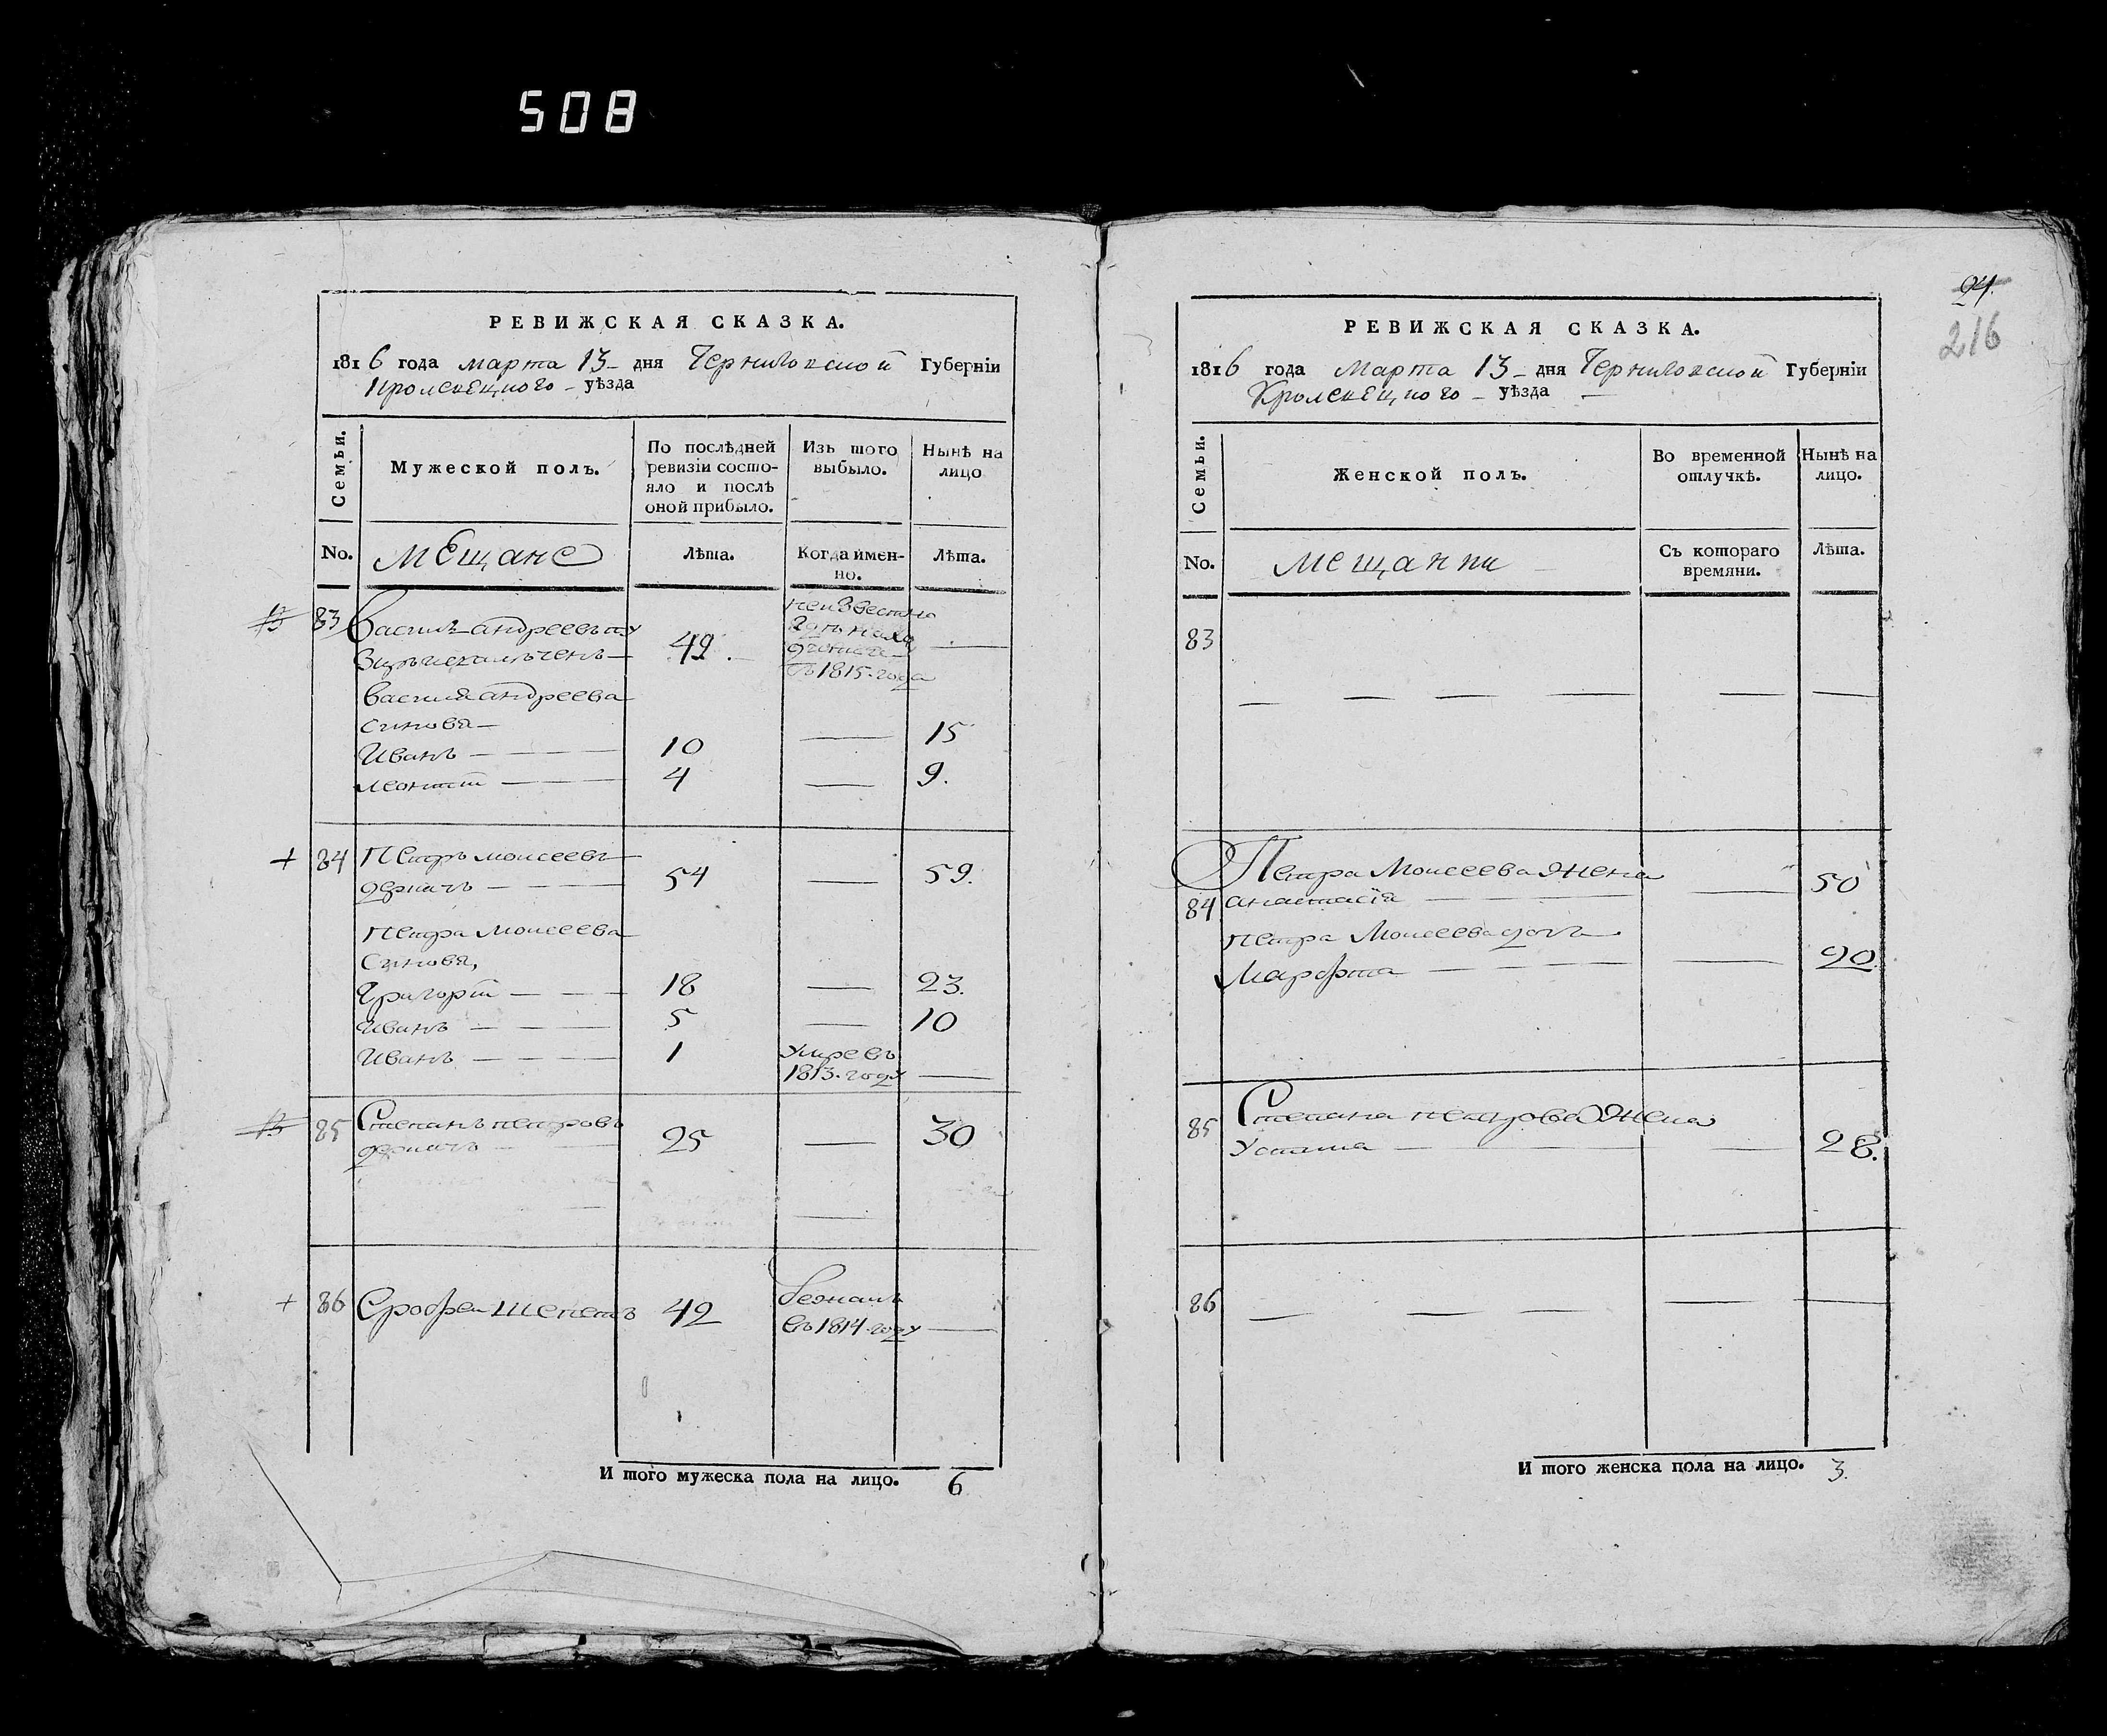 508
РЕВИЖСКАЯ СКАЗКА.
1816 года марта 13 дня Черниговской Губерніи
Кролевецкого уѣзда
Семьи.
Мужеской полъ.
По послѣдней ревизіи состо-
яло и послѣ
оной прибыло.
Изъ того
выбыло.
Нынѣ на
лицо
No.
мещане
Лѣта.
Когда имен-
но.
Лѣта.
83 Василь андреевъ
49
неизвестно
въ 1815 года
василия андреева
синовя
Иванъ 10 15
леонтий 4 9.
84 Петръ моисеевъ
дермачъ 54 59.
петра Моисеева
синовя,
Григорій 18 23.
иванъ 5 10
иванъ 1 Умре въ
1813 году
85 Степанъ петровъ
дермачъ 25 30
86 Ерофеи Шепетъ 42 бежалъ
въ 1814 году
И того мужеска пола на лицо. 6
24.
216
РЕВИЖСКАЯ СКАЗКА.
1816 года Марта 13 дня Черниговской Губерніи
Кролевецкого уѣзда
Семьи.
Женской полъ.
Во временной
отлучкѣ.
Нынѣ на
лицо.
No.
мещанки
Съ котораго
времяни.
Лѣта.
83
Петра Моисеева жена
84 анастасія 50
петра Моисеева дочь
Марфта 20.
85 Степана петрова жена
Устина 28.
86
И того женска пола на лицо. 3.